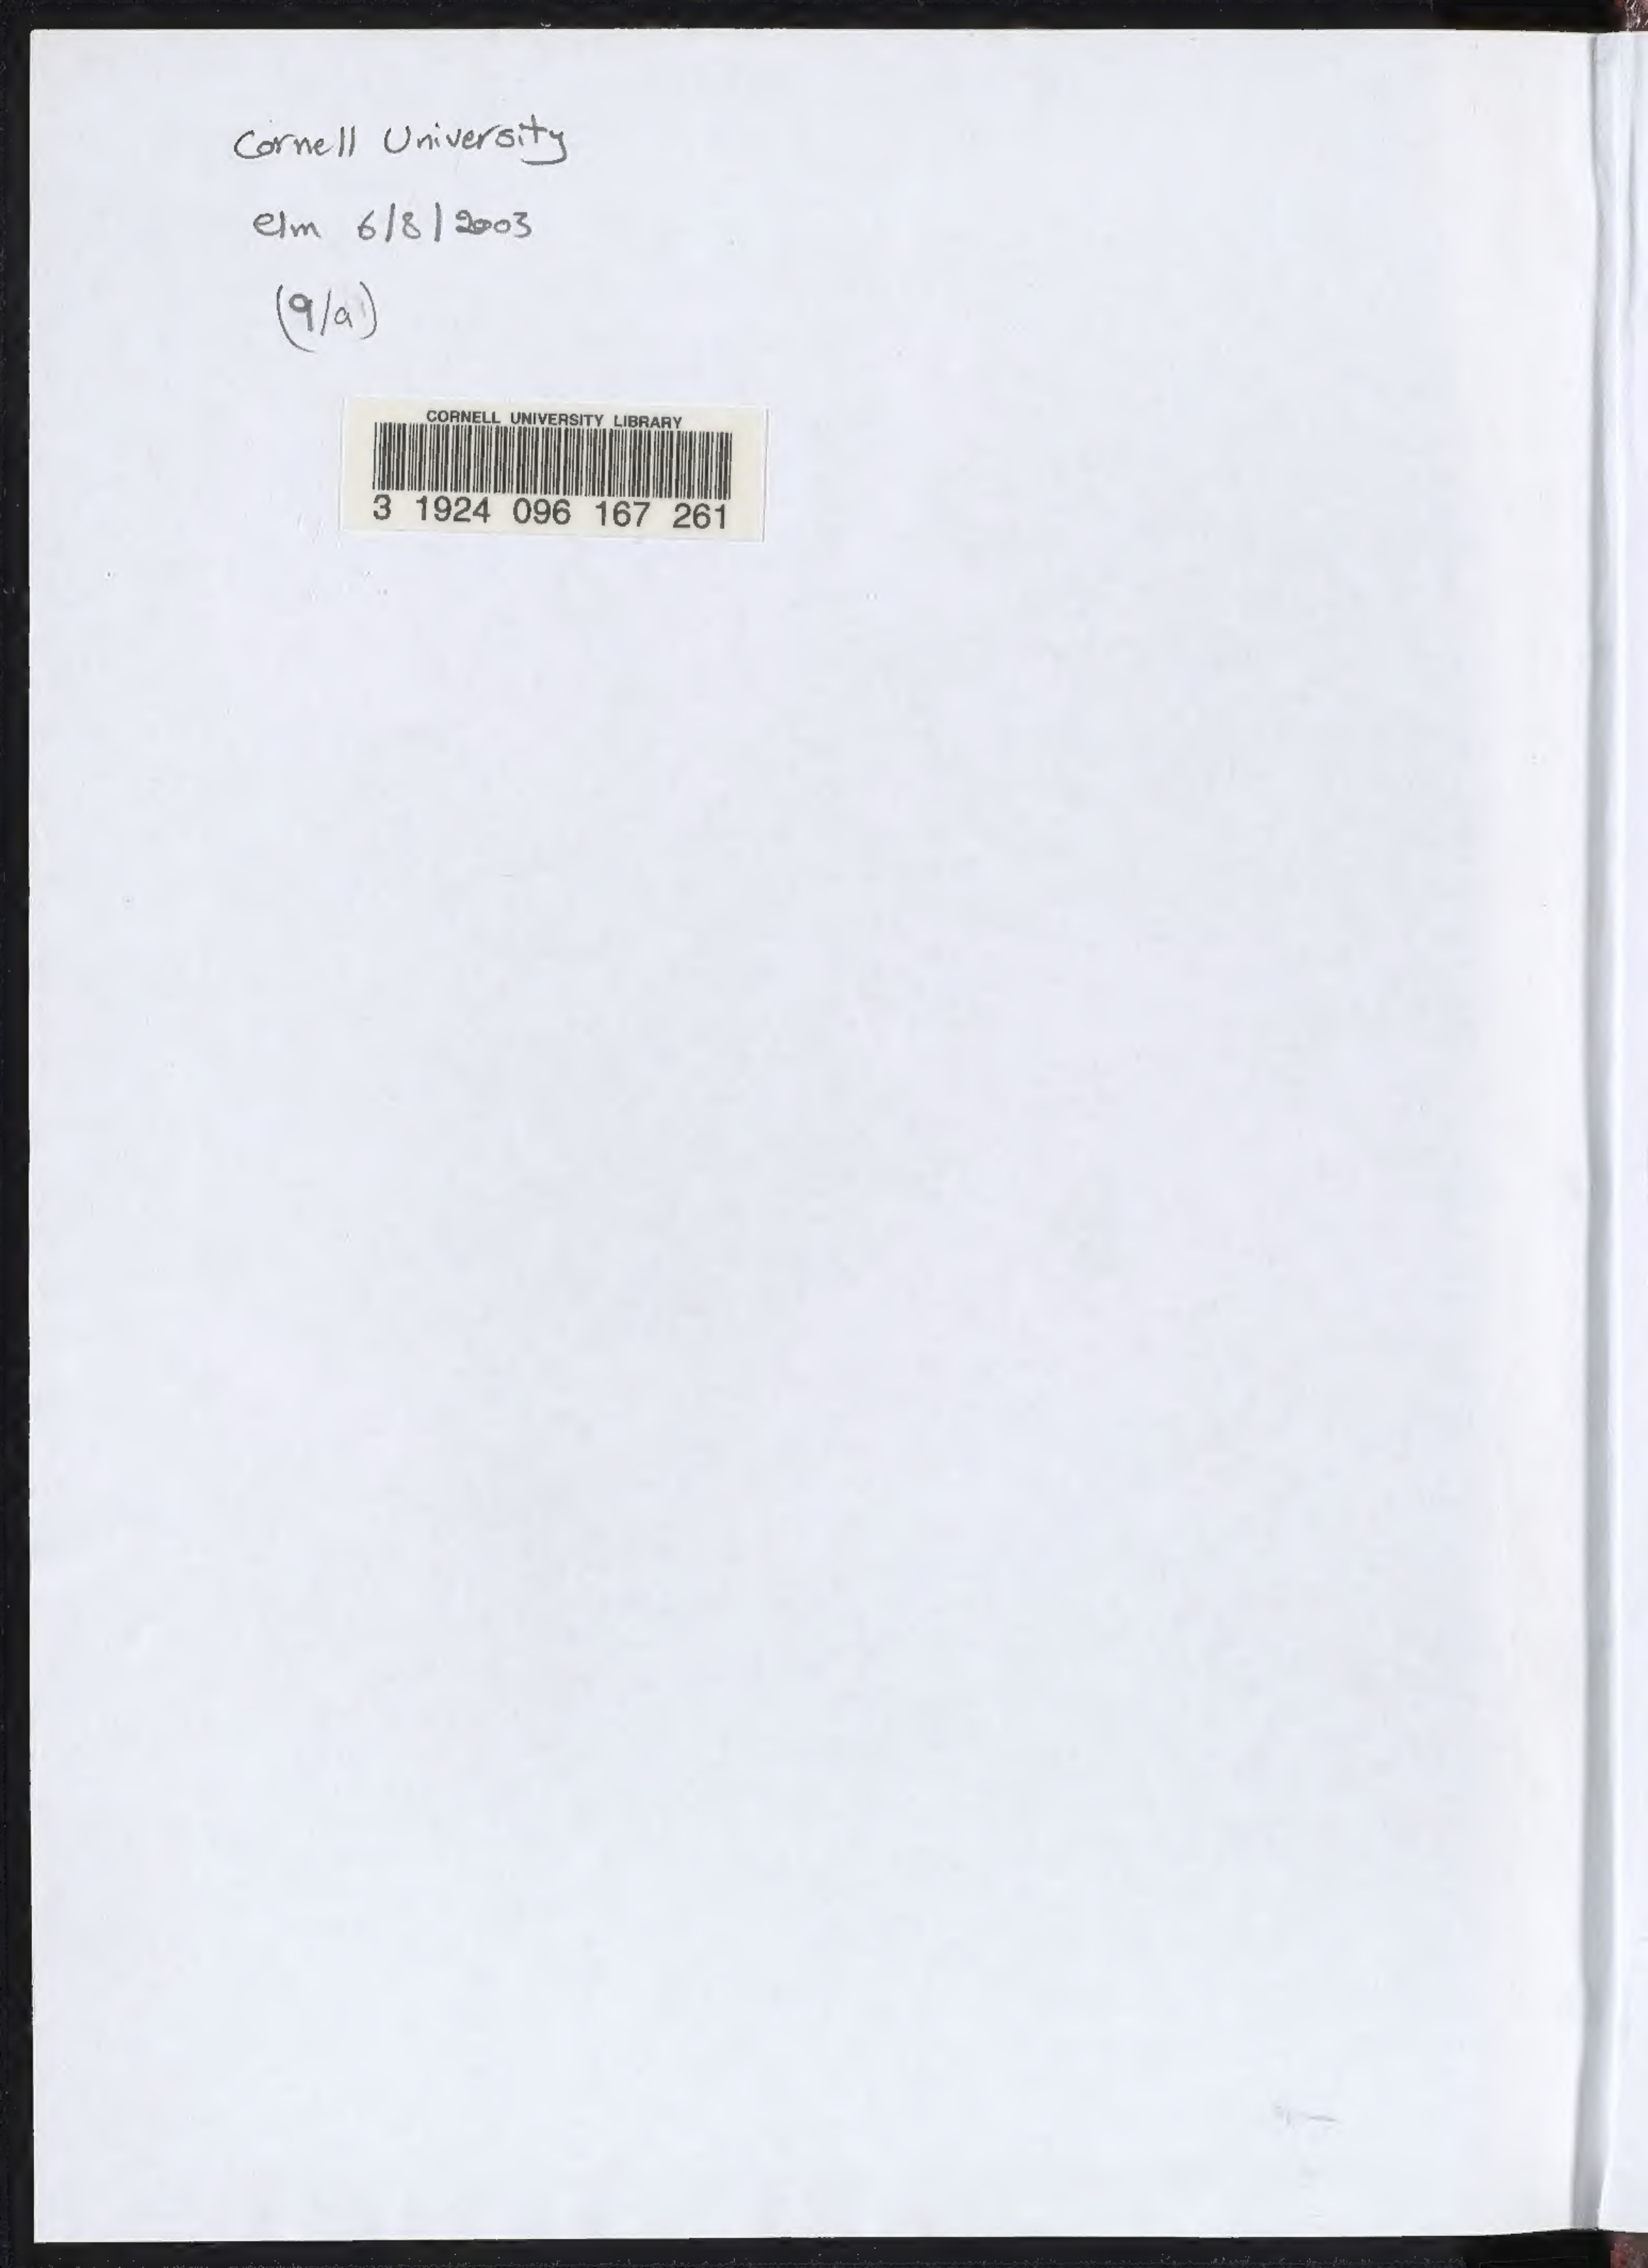 Cornell University
elm 6/8/2003
(9/a)
CORNELL UNIVERSITY LIBRARY
3 1924 096 167 261